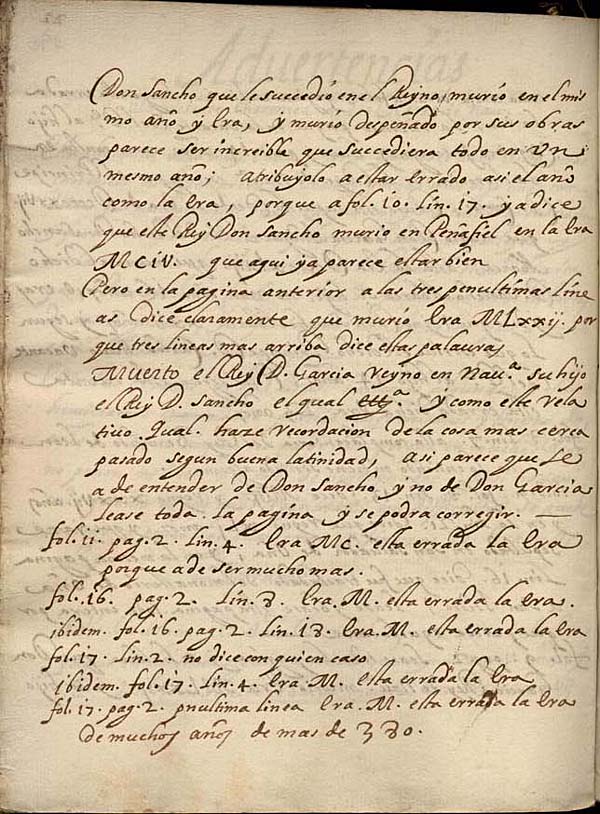 Don Sancho que le succedió en el Reyno, murio en el mis
mo año y Era, y murio despeñado por sus obras
parece ser increible que succediera todo en un
mesmo año; atribuyolo a estar errado asi el año
como la Era, porque a fol. 10. lin. 17. ya dice
que este Rey Don Sancho murio en Peñafiel en la Era
MCIV. que aqui ya parece estar bien
Pero en la pagina anterior a las tres penultimas line
as dice claramente que murio Era MLxxij. por
que tres lineas mas arriba dice estas palauras
Muerto el Rey D. Garcia reyno en Nau.ª su hijo
el Rey D. Sancho el qual &ª. y como este rela
tiuo Qual. haze recordacion de la cosa mas cerca
pasado segun buena latinidad, asi parece que se
a de entender de Don Sancho y no de Don Garcia
lease toda la pagina y se podra corregir. —
fol. 11. pag. 2. lin. 4. Era MC. esta errada la Era
porque a de ser mucho mas.
fol. 16. pag. 2. lin. 8. Era. M. esta errada la Era.
ibidem. fol. 16. pag. 2. lin. 18. Era. M. esta errada la Era
fol. 17. lin. 2. no dice con quien caso
ibidem. fol. 17. lin. 4. Era M. esta errada la Era
fol. 17. pag. 2. pnultima linea Era. M. esta errada la Era
de muchos años de mas de 380.